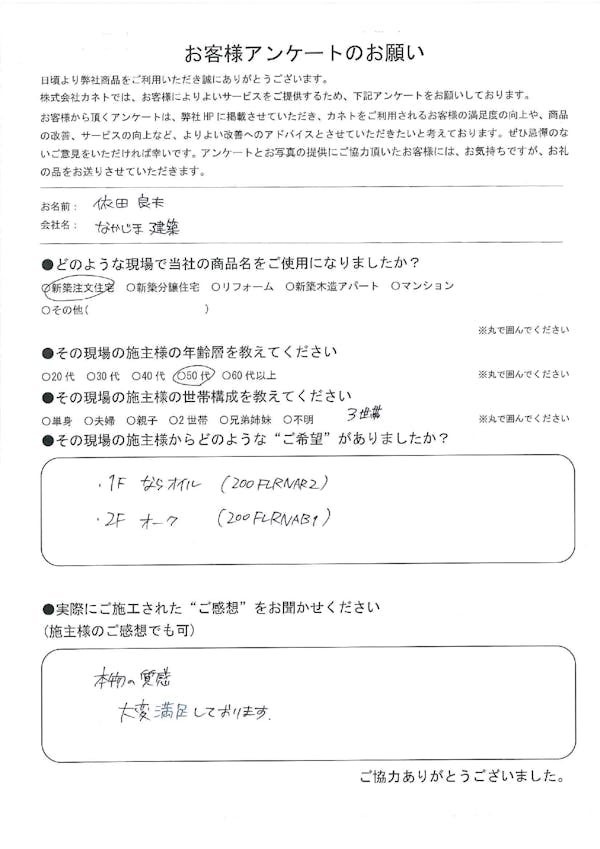 お客様アンケートのお願い
日頃より弊社商品をご利用いただき誠にありがとうございます。
株式会社カネトでは、お客様によりよいサービスをご提供するため、下記アンケートをお願いしております。
お客様から頂くアンケートは、弊社HPに掲載させていただき、カネトをご利用されるお客様の満足度の向上や、商品
の改善、サービスの向上など、よりよい改善へのアドバイスとさせていただきたいと考えております。ぜひ忌憚のな
いご意見をいただければ幸いです。アンケートとお写真の提供にご協力頂いたお客様には、お気持ちですが、お礼
の品をお送りさせていただきます。
お名前： 依田 良夫
会社名： なかじま 建築
●どのような現場で当社の商品名をご使用になりましたか？
○新築注文住宅 ○新築分譲住宅 ○リフォーム ○新築木造アパート ○マンション
○その他( )
※丸で囲んでください
●その現場の施主様の年齢層を教えてください
○20代 ○30代 ○40代 ○50代 ○60代以上 ※丸で囲んでください
●その現場の施主様の世帯構成を教えてください
○単身 ○夫婦 ○親子 ○2世帯 ○兄弟姉妹 ○不明 3世帯 ※丸で囲んでください
●その現場の施主様からどのような“ご希望”がありましたか？
・1F ならオイル (200FLRNAR2)
・2F オーク (200FLRNAB9)
●実際にご施工された“ご感想”をお聞かせください
(施主様のご感想でも可)
本物の質感
大変満足しております。
ご協力ありがとうございました。